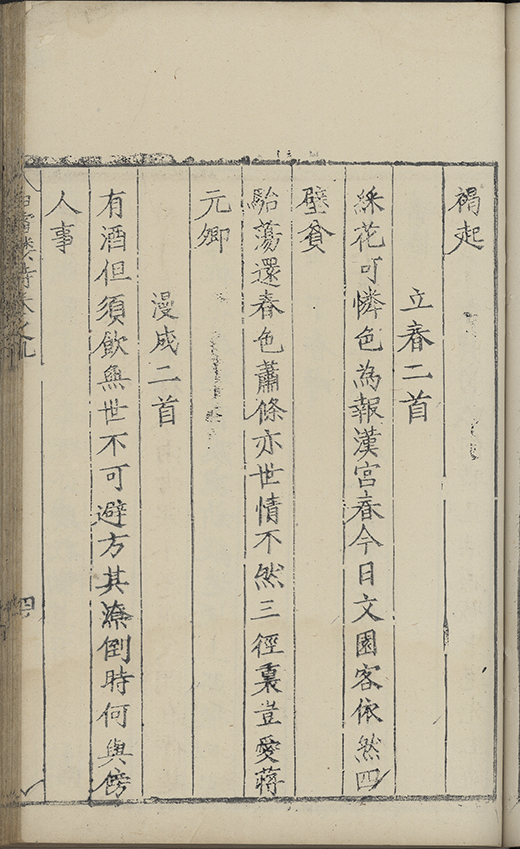 褐起
立春二首
綵花可憐色為報漢宮春今日文園客依然四
壁貧
駘蕩還春色蕭條亦世情不然三徑裏豈愛蔣
元卿
漫成二首
有酒但須飲無世不可避方其潦倒時何與傍
人事